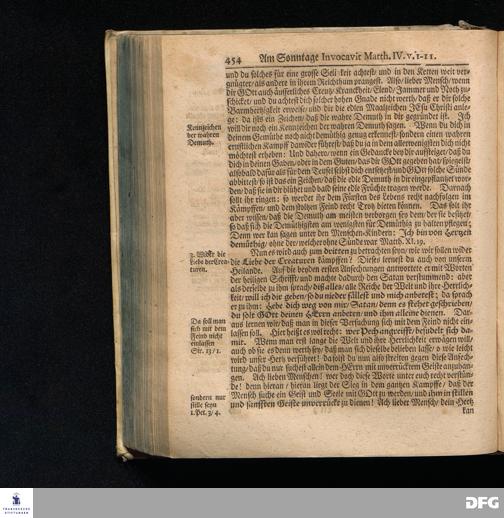 454 Am Sonntage Invocavit Matth. IV. v. 1-11.
und du solches für eine grosse Seligkeit achtest/ und in den Ketten weit ver-
gnügter/ als andere in ihrem Reichthum prangest. Also/ lieber Mensch/ wenn
dir GOtt auch äusserliches Creutz/ Kranckheit/ Elend/ Jammer und Noth zu-
schicket/ und du achtest dich solcher hohen Gnade nicht werth/ daß er dir solche
Barmhertzigkeit erweise/ und dir die edlen Maalzeichen JEsu Christi anle-
ge: da ists ein Zeichen/ daß die wahre Demuth in dir gegründet ist. Jch
Kennzeichen der wahren Demuth.
will dir noch ein Kennzeichen der wahren Demuth sagen. Wenn du dich in
deinem Gemüthe noch nicht demüthig genug erkennest/ sondern einen wahren
ernstlichen Kampff dawider führest/ daß du ja in dem allerwenigsten dich nicht
möchtest erheben: Und daher/ wenn ein Gedancke bey dir aufsteiget/ daß du
dich in deinen Gaben/ oder in dem Guten/ das dir GOtt gegeben hat/ spiegelst/
alsobald dafür als für dem Teufel selbst dich entsetzest/ und GOtt solche Sünde
abbittest/ so ist das ein Zeichen/ daß die edle Demuth in dir eingepflantzet wor-
den/ daß sie in dir blühet und bald seine edle Früchte tragen werde. Darnach
solt ihr ringen: so werdet ihr dem Fürsten des Lebens recht nachfolgen im
Kämpffen/ und dem stoltzen Feind recht Trotz bieten können. Das solt ihr
aber wissen/ daß die Demuth am meisten verborgen sey dem/ der sie besitzet/
so daß sich die Demüthigsten am wenigsten für Demüthig zu halten pflegen:
Denn wer kan sagen unter den Menschen-Kindern: Jch bin von Hertzen
demüthig/ ohne der/ welcher ohne Sünde war Matth. XI. 29.
3. Wider die Liebe der Creaturen.
Nun es wird auch zum dritten zu betrachten seyn/ wie wir sollen wider
die Liebe der Creaturen kämpffen? Dieses lernest du auch von unserm
Heilande. Auf die beyden ersten Anfechtungen antwortete er mit Worten
der heiligen Schrifft/ und machte dadurch den Satan verstummend: aber
als derselbe zu ihm sprach/ diß alles/ alle Reiche der Welt und ihre Herrlich-
keit/ will ich dir geben/ so du nieder fällest und mich anbetest; da sprach
er zu ihm: Hebe dich weg von mir/ Satan/ denn es stehet geschrieben/
du solt GOtt deinen HErrn anbeten/ und ihm alleine dienen. Dar-
Da soll man sich mit dem Feind nicht einlassen Sir. 13/1.
aus lernen wir/ daß man in dieser Versuchung sich mit dem Feind nicht ein-
lassen soll. Hier heißt es wol recht: wer Pech angreifft/ besudelt sich da-
mit. Wenn man erst lange die Welt und ihre Herrlichkeit erwägen will/
auch ob sie es denn werth sey/ daß man sich dieselbe belieben lasse/ o wie leicht
wird unser Hertz verführet! da solst du nun also streiten gegen diese Anfech-
tung/ daß du nur suchest allein dem HErrn mit unverrücktem Geist anzuhan-
gen. Ach lieben Menschen! wer doch diese Worte unter euch recht verstün-
de! denn hieran/ hieran liegt der Sieg in dem gantzen Kampffe/ daß der
sondern nur stille seyn 1. Pet. 3/4.
Mensch suche ein Geist und Seele mit GOtt zu werden/ und ihm in stillem
und sanfften Geiste unverrückt zu dienen! Ach lieber Mensch/ dein Hertz
kan
DFG